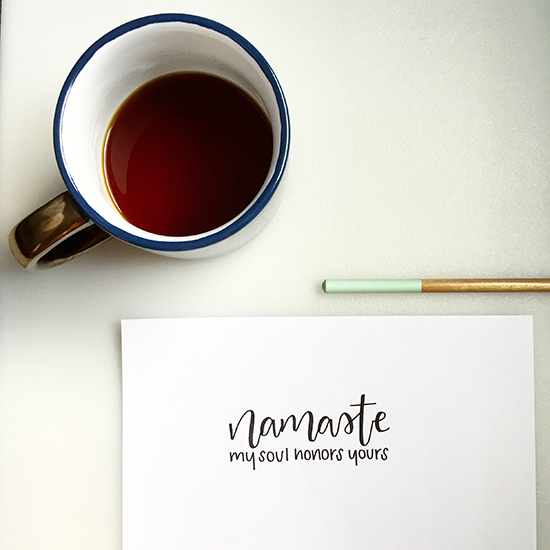 namaste
my soul honors yours